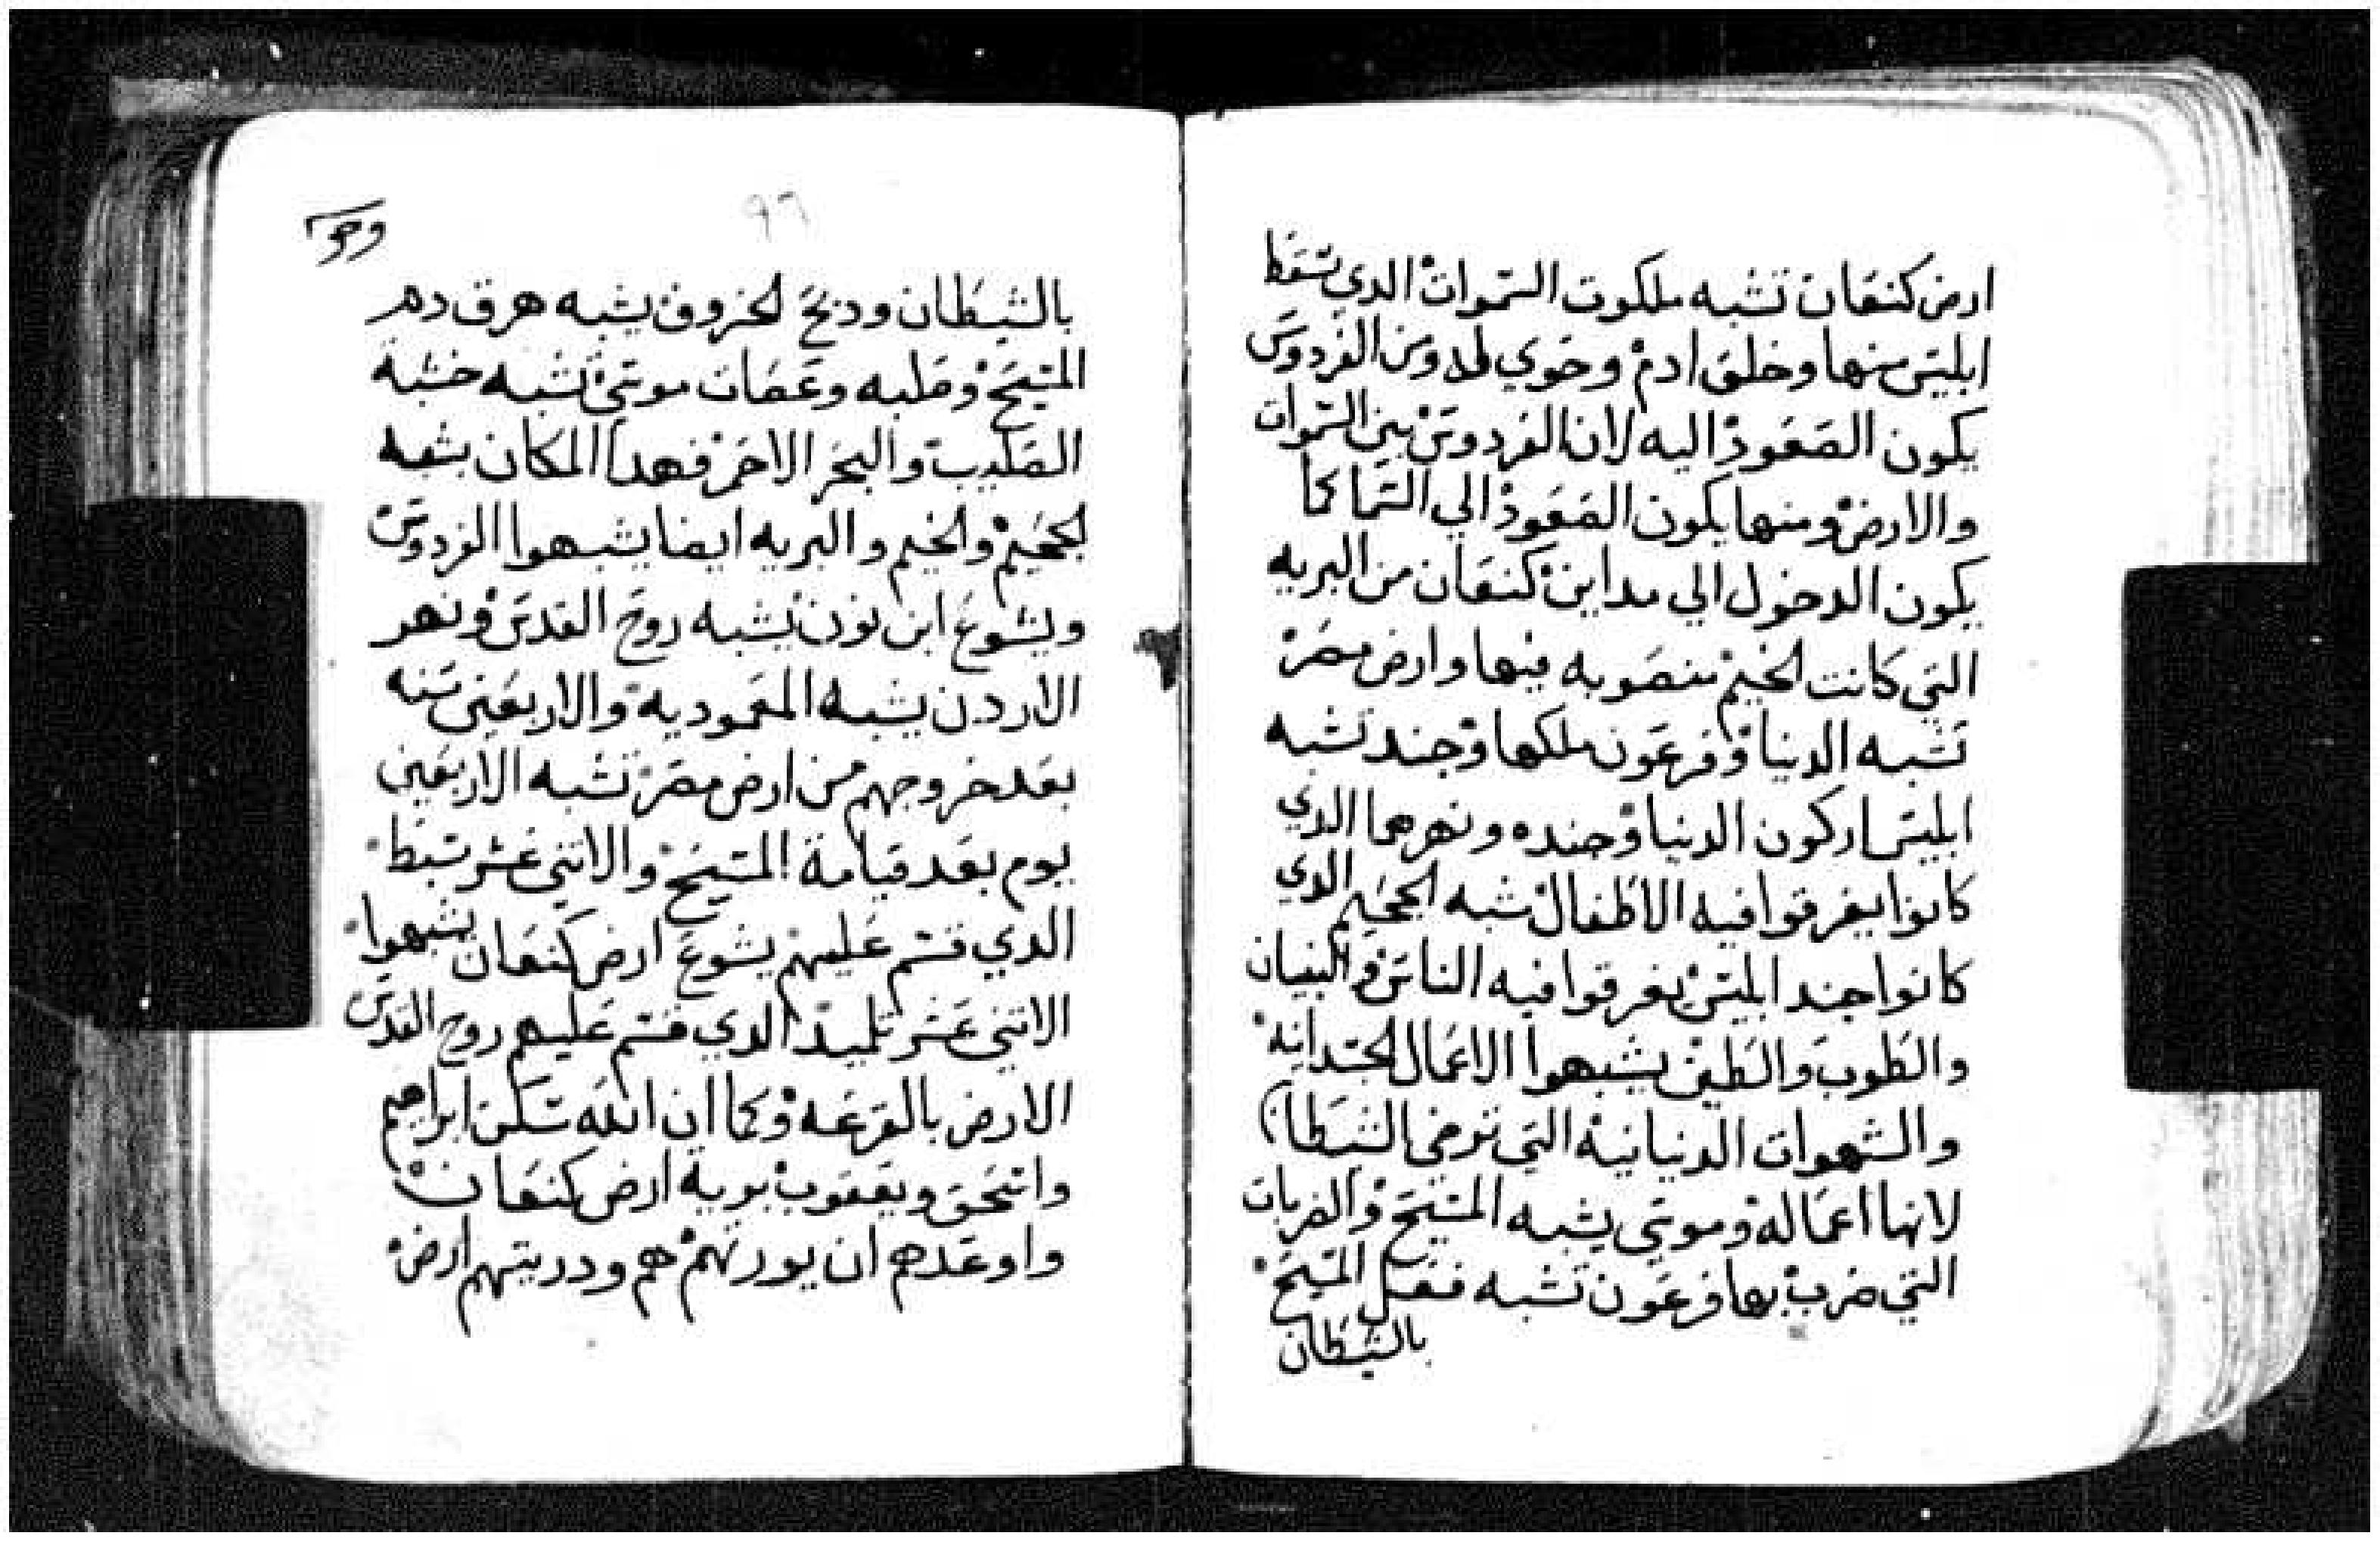 ارض كنعان تشبه ملكوت السموات الدي سقط
ابليس منها وخلق ادم وحوي لها ومن الفردوس
يكون الصعود اليه لان الفردوس بين السموات
والارض ومنها يكون الصعود الي السما كما
يكون الدخول الي مداين كنعان من البريه
التي كانت الخيم منصوبه فيها وارض مصر
تشبه الدنيا وفرعون ملكها وجند تشبه
ابليس اركون الدنيا وجنده ونهرهما الدي
كانوا يغرقوا فيه الاطفال شبه الجحيم الدي
كانوا جند ابليس يغرقوا فيه الناس والبنيان
والطوب والطين يشبهوا الاعمال الجسدانيه
والشهوات الدنيانيه التي ترمي الشيطان
لانها اعماله وموسي يشبه المسيح والضربات
التي ضرب بها فرعون تشبه فعل المسيح
بالشيطان
٩٦
بالشيطان ودبح الخروف يشبه هرق دم
المسيح وصلبه وعصات موسي تشبه خشبة
الصليب والبحر الاحمر فهدا المكان يشبه
الجحيم والخيم والبريه ايضا يشبهوا الفردوس
ويشوع ابن نون يشبه روح القدس ونهر
الاردن يشبه المعموديه والاربعين سنه
بعد خروجهم من ارض مصر تشبه الاربعين
يوم بعد قيامة المسيح والاتني عشر سبط
الدي قسم عليهم يشوع ارض كنعان يشبهوا
الاتني عشر تلميد الدي قسم عليهم روح القدس
الارض بالقرعه وكما ان الله سكن ابراهيم
واسحق ويعقوب بريه ارض كنعان
واوعدهم ان يورتهم هم ودريتهم ارض